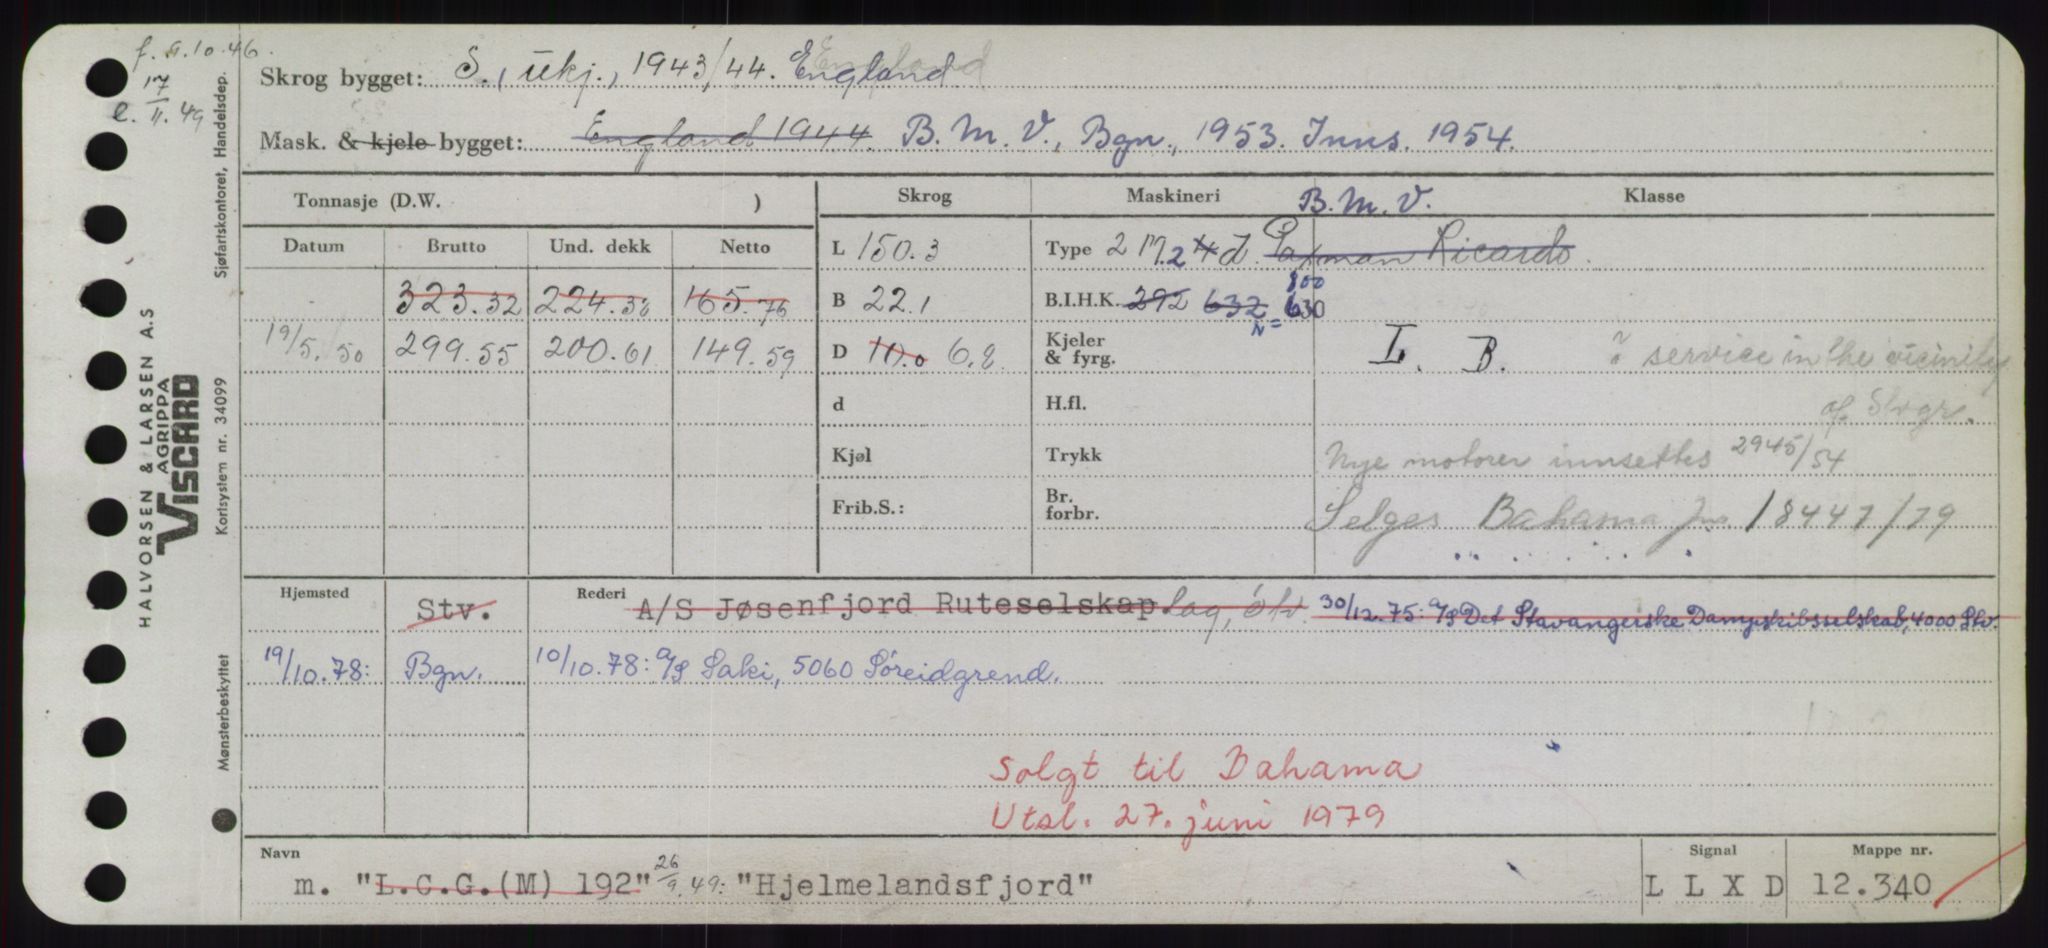 f. 5.10.46.
17
e. II. 49
Skrog bygget: S., ukj., 1943/44. England
Mask. & kjele bygget: England 1944. B.M.V., Bgn., 1953. Inns. 1954.
Tonnasje (D.W. )
Skrog
Maskineri
B.M.V.
Klasse
Datum Brutto Und. dekk Netto
L 150.3
Type 2 M. 2 4 d. Paxman Ricardo.
323.32 224.38 165.76
B 22.1
800
B.I.H.K. 292 632 630
N=
19/5.50 299.55 200.61 149.59
D 10.0 6.8
Kjeler & fyrg.
I. B. ? service in the vicinity
of Stvgr.
d
H.fl.
Kjøl
Trykk
Nye motorer innsettes 2945/54
Frib.S.:
Br. forbr.
Selges Bahama 18447/79
Hjemsted Stv.
Rederi A/S Jøsenfjord Ruteselskap lag, Stv. 30/12.75: A/S Det Stavangerske Dampskibsselskab, 4000 Stv.
19/10.78: Bgn. 10/10.78: A/S Saki, 5060 Söreidgrend.
Solgt til Bahama
Utsl. 27. juni 1979
Navn
m. "L.C.G.(M) 192" 26/9.49: "Hjelmelandsfjord"
Signal
L L X D
Mappe nr.
12.340
HALVORSEN & LARSEN A.S
AGRIPPA
VISCARD
Mønsterbeskyttet Kortsystem nr. 34099 Sjøfartskontoret, Handelsdep.